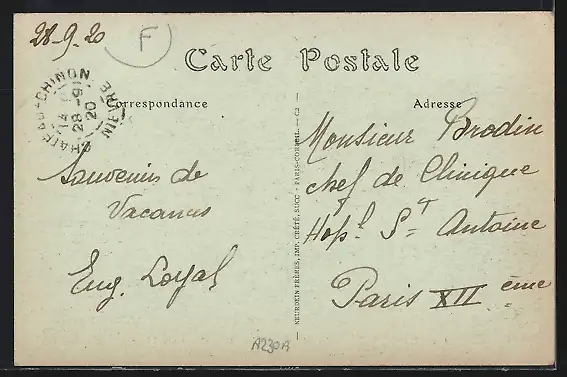 28-9.20
F
Carte Postale
Correspondance
Adresse
CHATEAU-CHINON
14
28 -9
20
NIEVRE
Souvenirs de
Vacances
Eug. Loyal
NEURDEIN FRÈRES, IMP. CRÉTÉ, SUCC. - PARIS-CORBEIL. - C2
Monsieur Brodin
chef de Clinique
Hop.l St Antoine
Paris XII ème
A230A